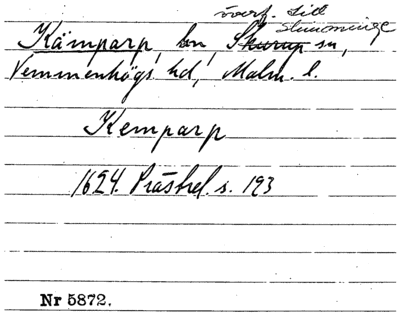 överf. till
Slimminge
Kämparp, by, Skurup sn,
Vemmenhögs hd, Malm. l.
Kemparp
1624. Prästrel. s. 193
Nr 5872.